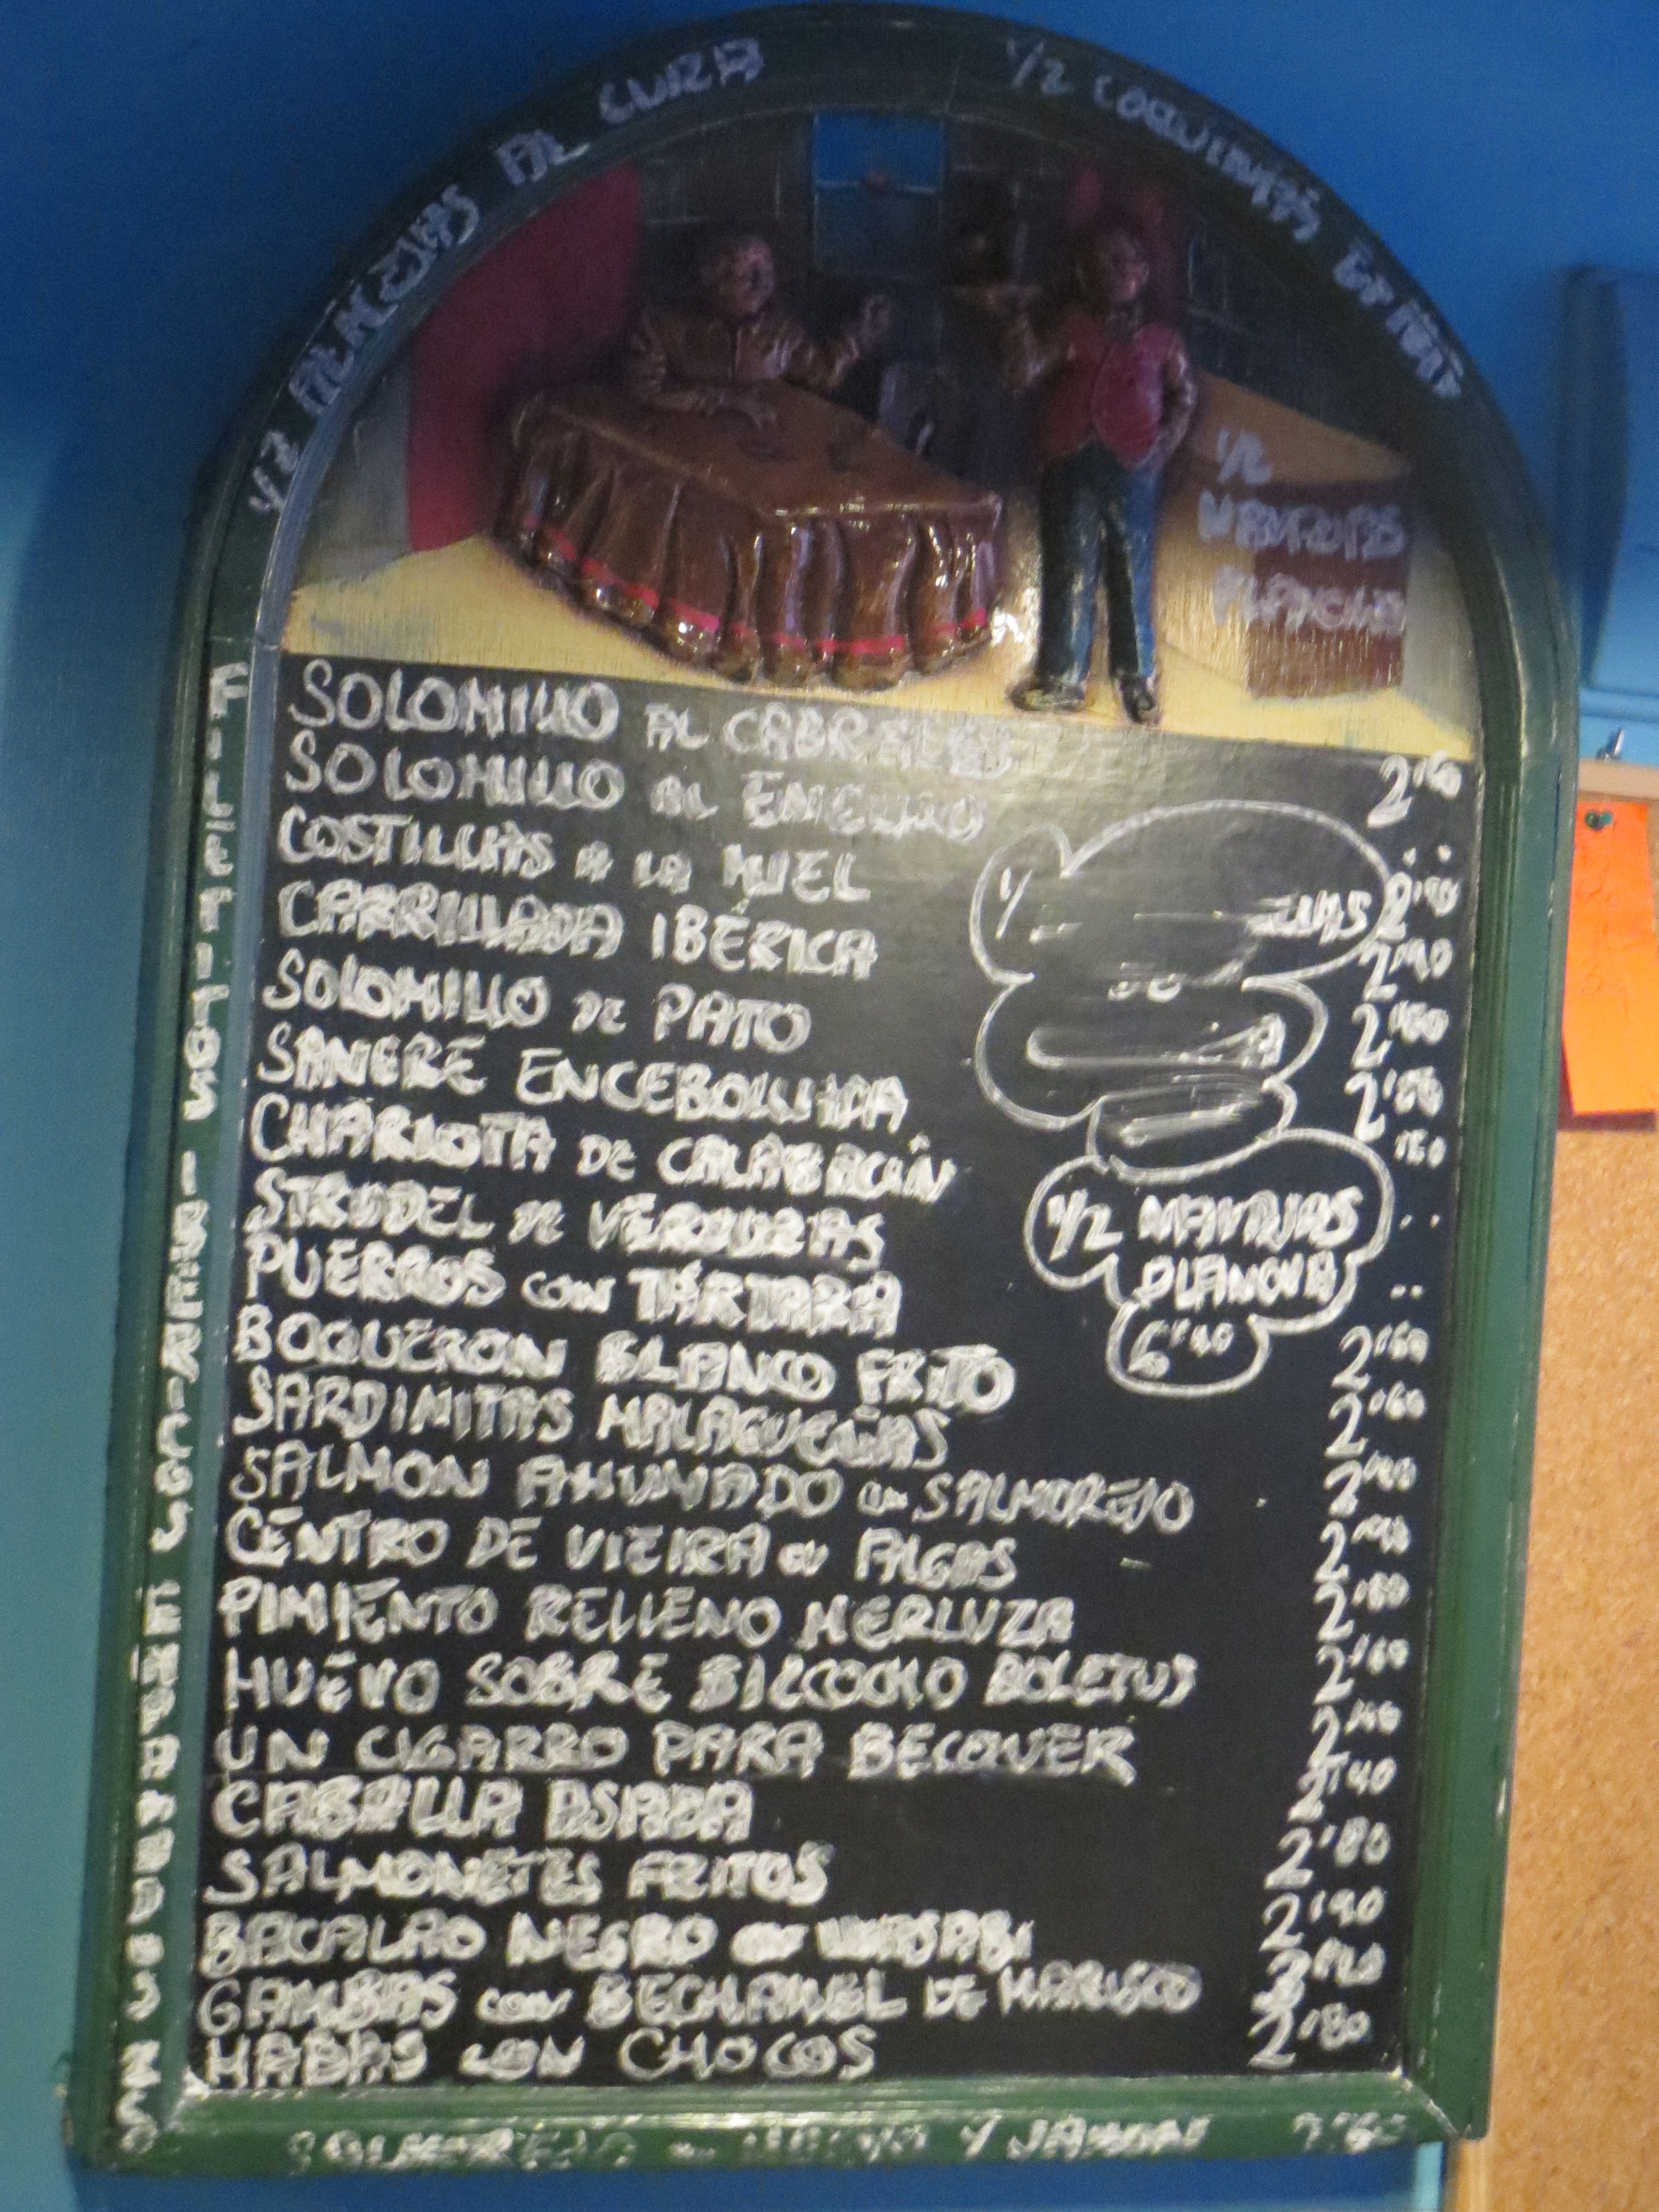 1/2 ALMEJAS AL CURA
1/2 COQUINAS
1/2
PLANCHA
SOLOMILLO AL CABRALES 2'60
SOLOMILLO AL ENELDO ..
COSTILLAS A LA MIEL 2'90
CARRILLADA IBÉRICA 2'90
SOLOMILLO DE PATO 2'80
SANGRE ENCEBOLLADA
CHARLOTA DE CALABACÍN
STRUDEL DE VERDURAS ..
PUERROS CON TÁRTARA ..
1/2
1/2 NAVAJAS
PLANCHA
6'40
BOQUERON BLANCO FRITO 2'60
SARDINITAS MALAGUEÑAS 2'60
SALMON AHUMADO CON SALMOREJO
CENTRO DE VIEIRA CON ALGAS 2'90
PIMIENTO RELLENO MERLUZA 2'80
HUEVO SOBRE BIZCOCHO BOLETUS 2'60
UN CIGARRO PARA BECQUER 2'40
CABRILLA ASADA 2'40
SALMONETES FRITOS 2'80
BACALAO NEGRO CON WASABI 2'90
GAMBAS CON BECHAMEL DE MARISCO
HABAS CON CHOCOS 2'80
FILETITOS
SALMOREJO Y JAMON